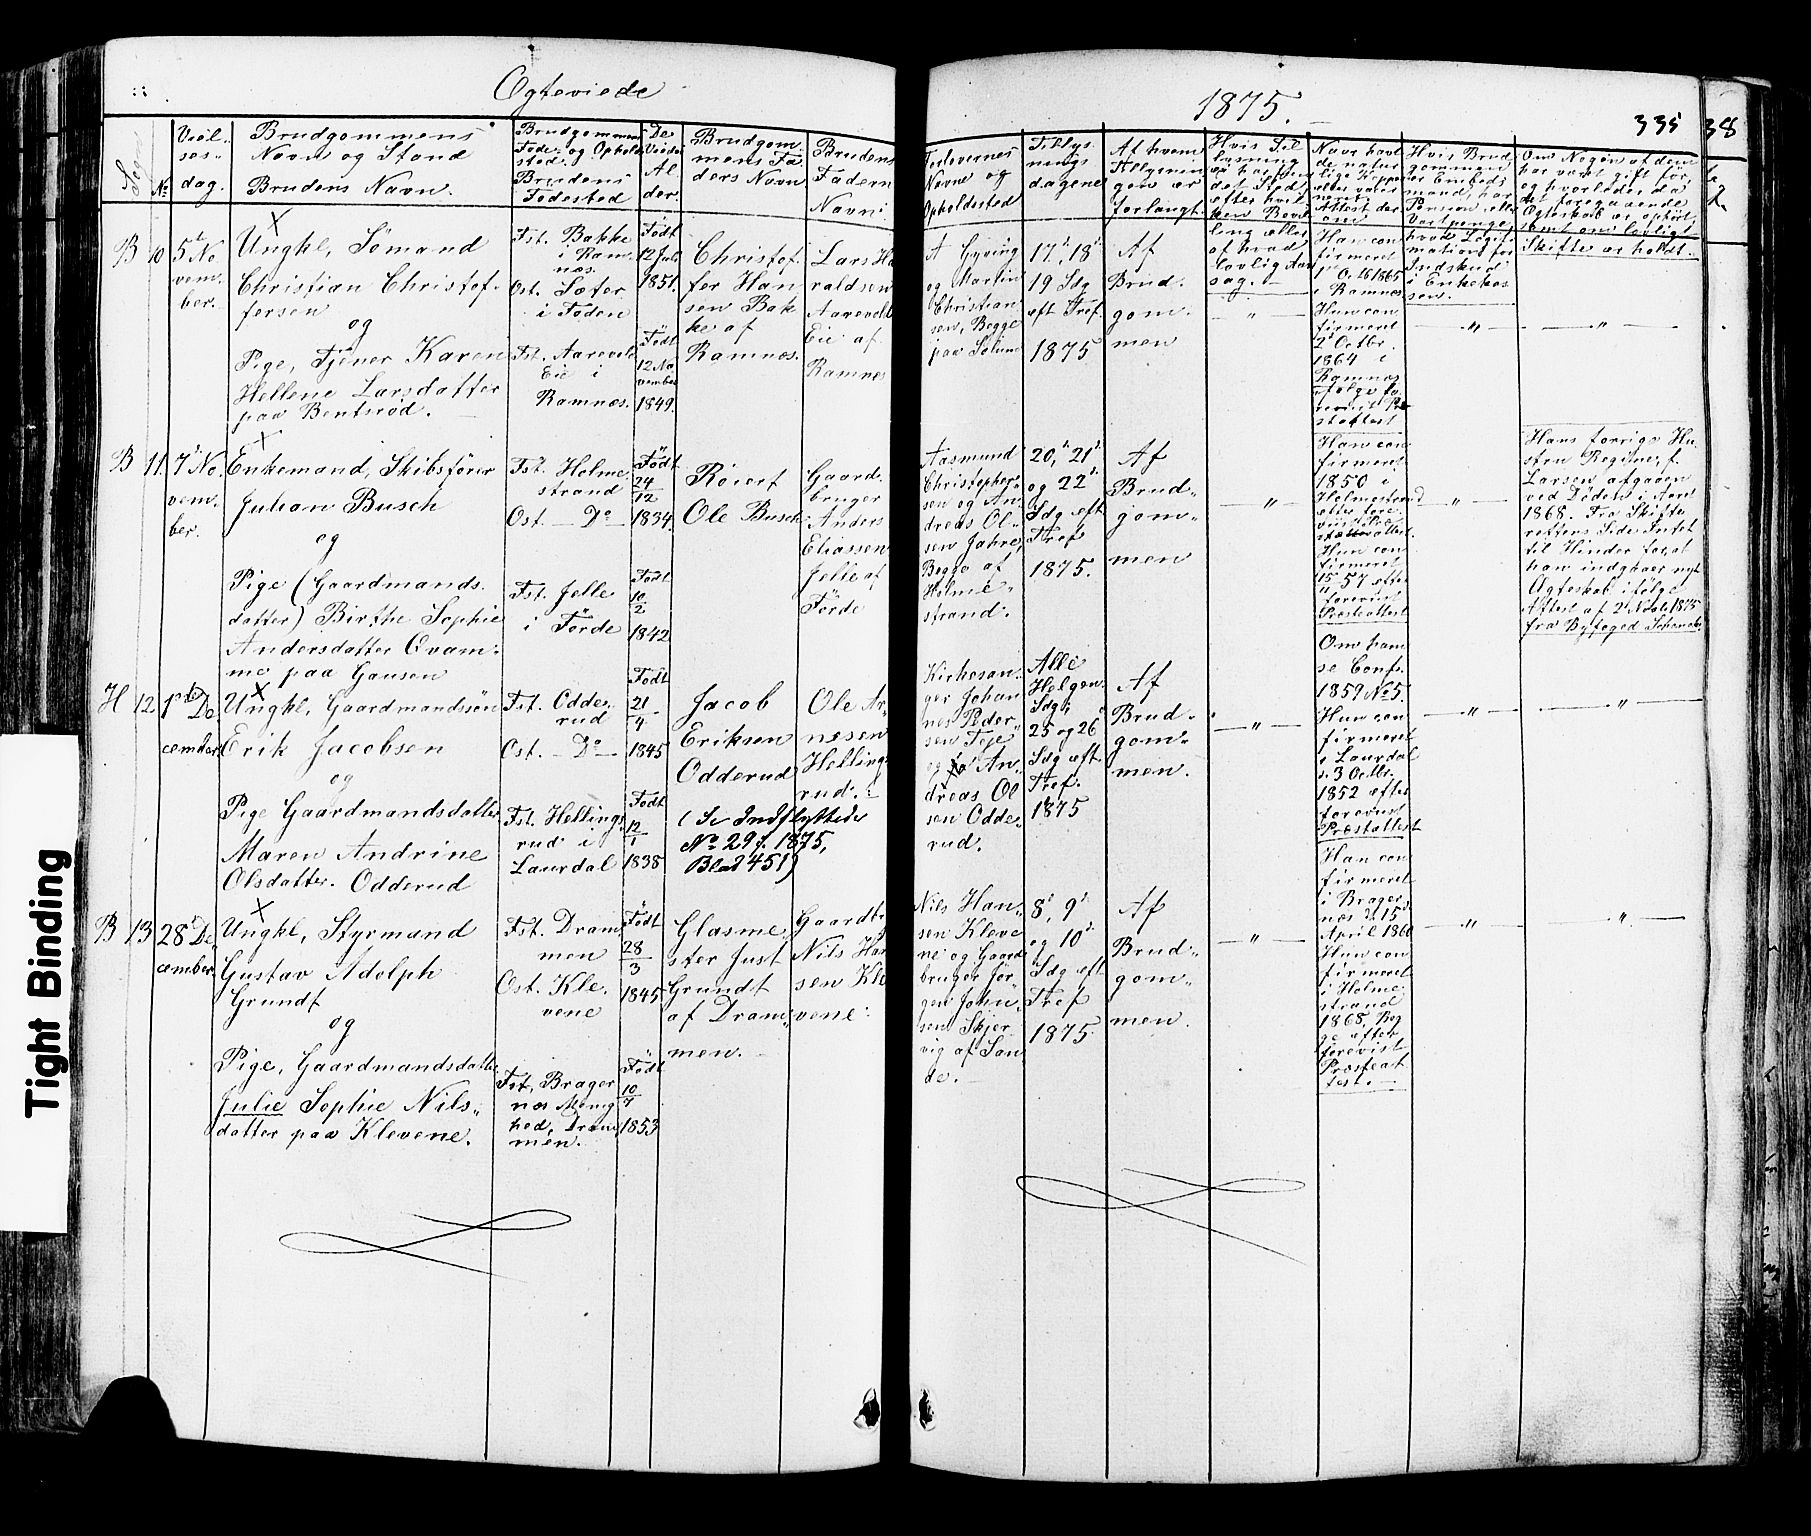 Ægteviede
1875.
335
38
Sogn
No
Viel-
ses-
dag.
Brudgommens
Navn og Stand
Brudens Navn.
Brudgommens
Føde- og Opholds
sted.
Brudens
Fødested
De
Viedes
Al
der.
Brudgom-
mens Fa
ders Navn
Brudens
Faders
Navn
Forlovernes
Navne og
Opholdssted
Tillys-
nings
dagene
Af hvem
Tillysnin
gen er
forlangt.
B
10
5t No
vem-
ber.
Ungkl, Sømand
Christian Christof-
fersen
og
Pige, Tjener Karen
Hellene Larsdatter
paa Bentsrød.
Fst. Bakke
i Ram-
næs.
Ost. Sæter
i Foden
Fst. Aarevold
Eie i
Ramnæs.
Født
12 July
1851.
Født
12 No
vember
1849.
Christof-
fer Han
sen Bak
ke af
Ramnæs.
Lars Ha
raldsen
Aarevold
Eie af
Ramnes
A Gyving
og Martin
Christian
sen, Begge
paa Solum
17, 18
19 Sdg
eft Tref
1875
Af
Brud-
gom-
men
"
Han con
firmeret
1 Oct 1865
i Ramnes
Hun con
firmeret
2 Octbr.
1864 i
Ramnæs
ifølge fo
revist Pre
stattest
"
"
Skifte er holdt.
B
11.
7d No
vem-
ber.
Enkemand, Skibsfører
Julian Busch
og
Pige (Gaardmands-
datter) Birthe Sophie
Andersdatter Qvam-
me paa Gausen
Fst. Holme-
strand
Ost. — Do —
Fst. Jelle
i Førde
Født
24
12
1834.
Født
10
2
1842
Røiert
Ole Busch
Gaard-
bruger
Anders
Eliassen
Jelle af
Førde
Aasmund
Christopher-
sen og An
dreas Ol-
sen Jahre,
Begge af
Holme-
strand.
20, 21
og 22
Sdg eft
Tref
1875.
Af
Brud-
gom-
men
"
Han con
firmeret
1850 i
Holmestrand
efter fore
vist Præ
steattest.
Hun con
firmeret
1857 efter
forevist
Præsteattest
"
Hans forrige Hu
stru Regine, f.
Larsen, afgaaen
ved Døden i Aaret
1868. Fra Skifte
rettens Side Intet
til Hinder for, at
han indgaaer nyt
Ægteskab ifølge
Attest af 2 Novbr 1875
fra Byfoged
H
12
1ste De
cember
Ungkl, Gaardmandssøn
Erik Jacobsen
og
Pige Gaardmandsdatter
Maren Andrine
Olsdatter. Odderud
Fst. Odde-
rud
Ost. — Do —
Fst. Hellings
rud i
Laurdal
Født
21
4
1845
Født
12
1
1838
Jacob
Eriksen
Odderud
(Se Indflyttede
No 29 f. 1875,
Blad 451)
Ole Ar-
nesen
Hellings
rud.
Kirkesan-
ger Johan
nes Peder
sen Teje
og An-
dreas Ol
sen Odde-
rud.
Alle
Helgen
Sdg,
25 og 26
Sdg eft.
Tref.
1875
Af
Brud-
gom-
men.
"
Om ham
se Conf.
1859 No 5.
Hun con
firmeret
i Laurdal
d. 3 Octbr.
1852 efter
forevist
Præstattest
"
"
B
13
28d De
cember
Ungkl, Styrmand
Gustav Adolph
Grundt
og
Pige, Gaardmandsdatter
Julie Sophie Nils-
datter paa Klevene.
Fst. Dram
men
Ost. Kle-
vene
Fst, Brager
næs Menig
hed, Dram
men.
Født
28
3
1845
Født
10
7
1853
Glasme
ster Just
Grundt
af Dram-
men.
Gaardbr
Nils Han
sen Kle
vene
Nils Han-
sen Kleve
ne og Gaard
bruger Jør-
gen John-
sen Skjer
vig af San
de.
8, 9
og 10
Sdg eft
Tref
1875.
Af
Brud-
gom-
men.
"
Han con
firmeret
i Brager-
næs d. 15
April 1860
Hun con
firmeret
i Holme-
strand
1868, Beg
ge efter
forevist
Præsteat
test.
"
"
Tight Binding